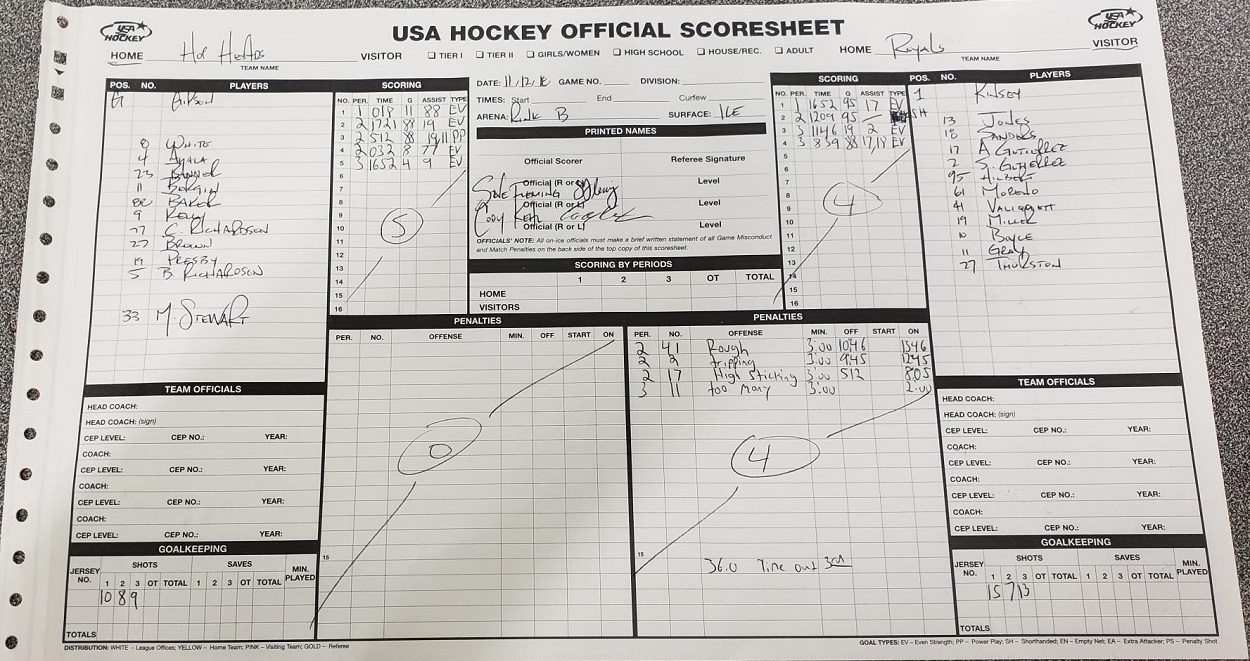 USA HOCKEY
USA HOCKEY OFFICIAL SCORESHEET
USA HOCKEY
HOME Hot Heads
TEAM NAME
VISITOR ☐ TIER I ☐ TIER II ☐ GIRLS/WOMEN ☐ HIGH SCHOOL ☐ HOUSE/REC. ☐ ADULT
HOME Royals VISITOR
TEAM NAME
POS. NO. PLAYERS
G
8 WHITE
4 AYALA
23
11
88 BAKER
9
77 C. RICHARDSON
27 BROWN
19 PRESBY
5 B. RICHARDSON
33 M. STEWART
SCORING
NO. PER. TIME G ASSIST TYPE
1 1 018 11 88 EV
2 2 1721 88 19 EV
3 2 512 88 19,11 PP
4 2 032 8 77 EV
5 3 1652 4 9 EV
6
7
8
9
10
11
12
13
14
15
16
5
DATE: GAME NO. DIVISION:
TIMES: Start End Curfew
ARENA: Rink B SURFACE: ICE
PRINTED NAMES
Official Scorer Referee Signature
Official (R or L) Level
FLEMING
Official (R or L) Level
Cody
Official (R or L) Level
OFFICIALS' NOTE: All on-ice officials must make a brief written statement of all Game Misconduct
and Match Penalties on the back side of the top copy of this scoresheet.
SCORING BY PERIODS
1 2 3 OT TOTAL
HOME
VISITORS
SCORING
NO. PER. TIME G ASSIST TYPE
1 1 1652 95 17 EV
2 2 1209 95 — SH
3 3 1146 19 2 EV
4 3 839 88 17,18 EV
5
6
7
8
9
10
11
12
13
14
15
16
4
POS. NO. PLAYERS
1 KINSEY
13 JONES
18 SANDERS
17 A GUTIERREZ
2 S. GUTIERREZ
95
61 MORENO
41
19 MILLER
10 BOYCE
11 GRAY
27 THURSTON
PENALTIES
PER. NO. OFFENSE MIN. OFF START ON
0
15
PENALTIES
PER. NO. OFFENSE MIN. OFF START ON
2 41 Rough 3:00 1046 1346
2 2 tripping 3:00 945 1245
2 17 High Sticking 3:00 512 805
3 11 too many 3:00 2:00
4
15
36.0 Time out 3rd
TEAM OFFICIALS
HEAD COACH:
HEAD COACH: (sign)
CEP LEVEL: CEP NO.: YEAR:
COACH:
CEP LEVEL: CEP NO.: YEAR:
COACH:
CEP LEVEL: CEP NO.: YEAR:
COACH:
CEP LEVEL: CEP NO.: YEAR:
GOALKEEPING
JERSEY NO. SHOTS SAVES MIN. PLAYED
1 2 3 OT TOTAL 1 2 3 OT TOTAL
10 8 9
TOTALS
TEAM OFFICIALS
HEAD COACH:
HEAD COACH: (sign)
CEP LEVEL: CEP NO.: YEAR:
COACH:
CEP LEVEL: CEP NO.: YEAR:
COACH:
CEP LEVEL: CEP NO.: YEAR:
COACH:
CEP LEVEL: CEP NO.: YEAR:
GOALKEEPING
JERSEY NO. SHOTS SAVES MIN. PLAYED
1 2 3 OT TOTAL 1 2 3 OT TOTAL
15 7 13
TOTALS
DISTRIBUTION: WHITE – League Offices; YELLOW – Home Team; PINK – Visiting Team; GOLD – Referee
GOAL TYPES: EV – Even Strength; PP – Power Play; SH – Shorthanded; EN – Empty Net; EA – Extra Attacker; PS – Penalty Shot